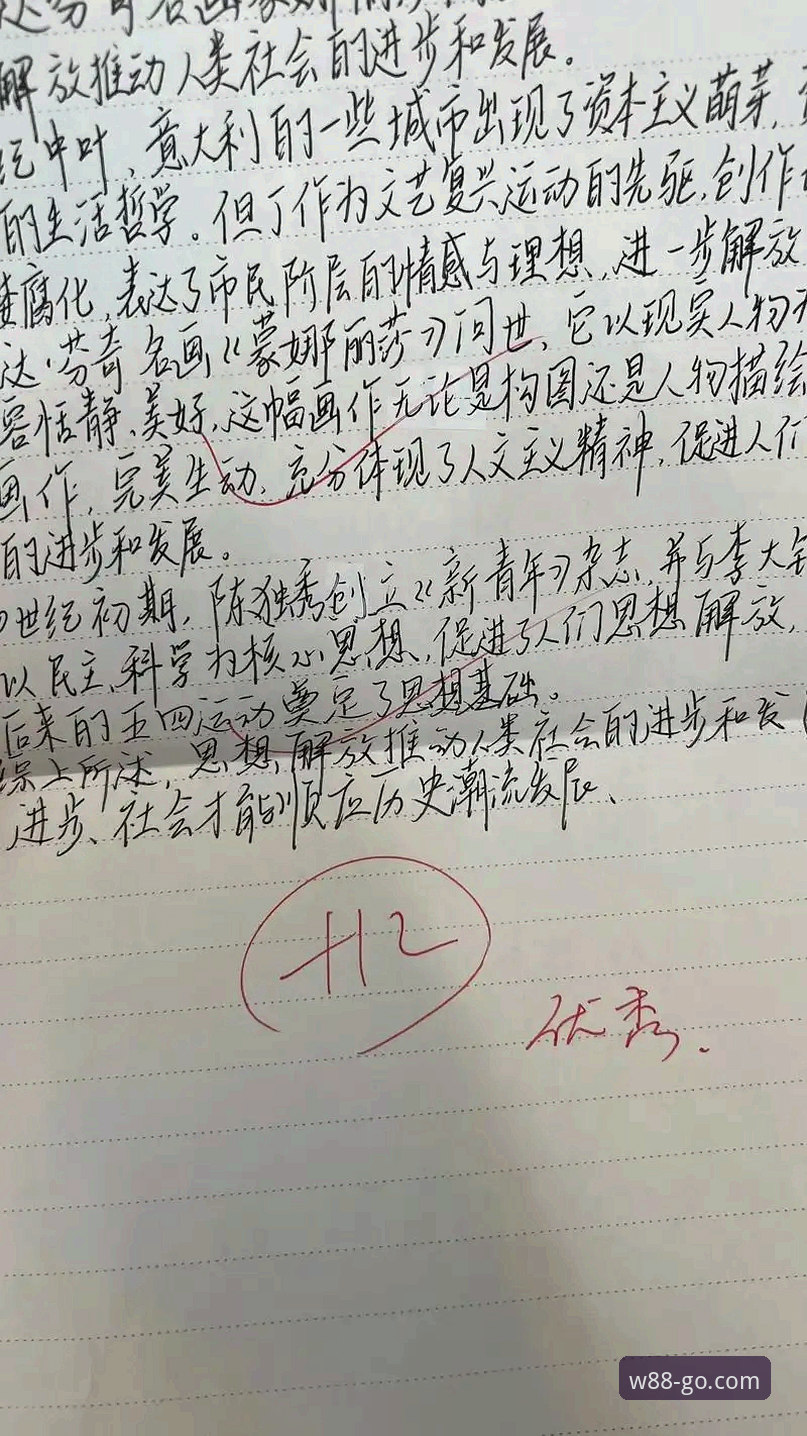 解放推动人类社会的进步和发展。
纪中叶，意大利的一些城市出现了资本主义萌芽，
的生活哲学。但丁作为文艺复兴运动的先驱，创作
腐化，表达了市民阶层的情感与理想，进一步解放
达·芬奇名画《蒙娜丽莎》问世，它以现实人物
容恬静、美好，这幅画作无论是构图还是人物描绘
画作，完美生动，充分体现了人文主义精神，促进人们
的进步和发展。
世纪初期，陈独秀创立《新青年》杂志，并与李大钊
以民主、科学为核心思想，促进了人们思想解放，
后来的五四运动奠定了思想基础。
综上所述，思想解放推动人类社会的进步和发
进步、社会才能顺应历史潮流发展、
+12
优秀.
w88-go.com